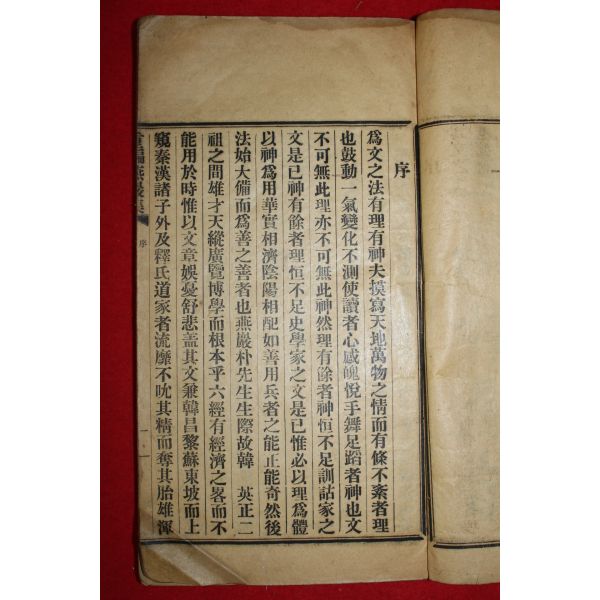 序
爲文之法有理有神夫摸寫天地萬物之情而有條不紊者理
也鼓動一氣變化不測使讀者心感魄悅手舞足蹈者神也文
不可無此理亦不可無此神然理有餘者神恒不足訓詁家之
文是已神有餘者理恒不足史學家之文是已惟必以理爲體
以神爲用華實相濟陰陽相配如善用兵者之能正能奇然後
法始大備而爲善之善者也燕巖朴先生生際故韓　英正二
祖之間雄才天縱廣覽博學而根本乎六經有經濟之畧而不
能用於時惟以文章娛憂舒悲盖其文兼韓昌黎蘇東坡而上
窺秦漢諸子外及釋氏道家者流靡不吮其精而奪其胎雄渾
序　一